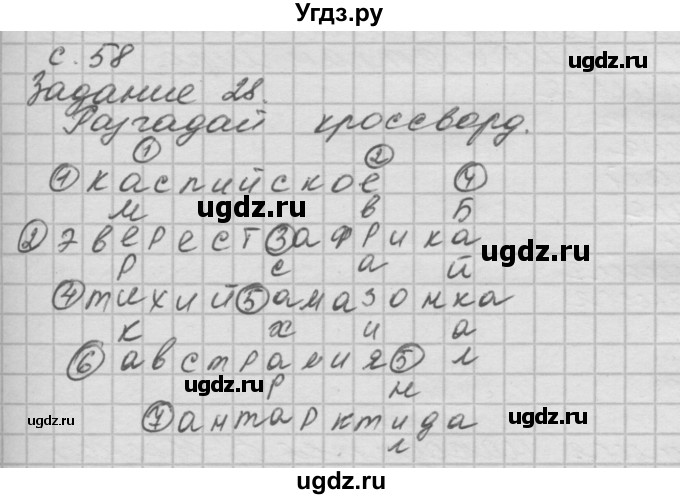 Угдз.ру
с. 58
Задание 28.
Разгадай кроссворд.
1 2
1 каспийское 4
м в Б
2 эверест 3 африка
р с а й
4 тихий 5 амазонка
к х и а
6 австралия 5 л
р н
7 антарктида
л
ugdz.ru
ugdz.ru
ugdz.ru
ugdz.ru
ugdz.ru
ugdz.ru
ugdz.ru
ugdz.ru